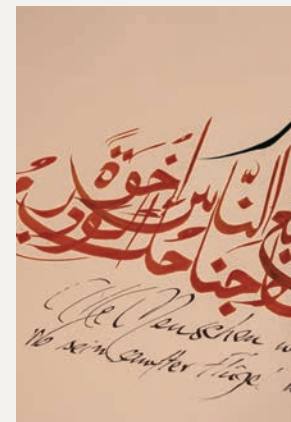 النّاسِ إخوَة
جناحك
Alle Menschen
wo sein sanfter Flügel